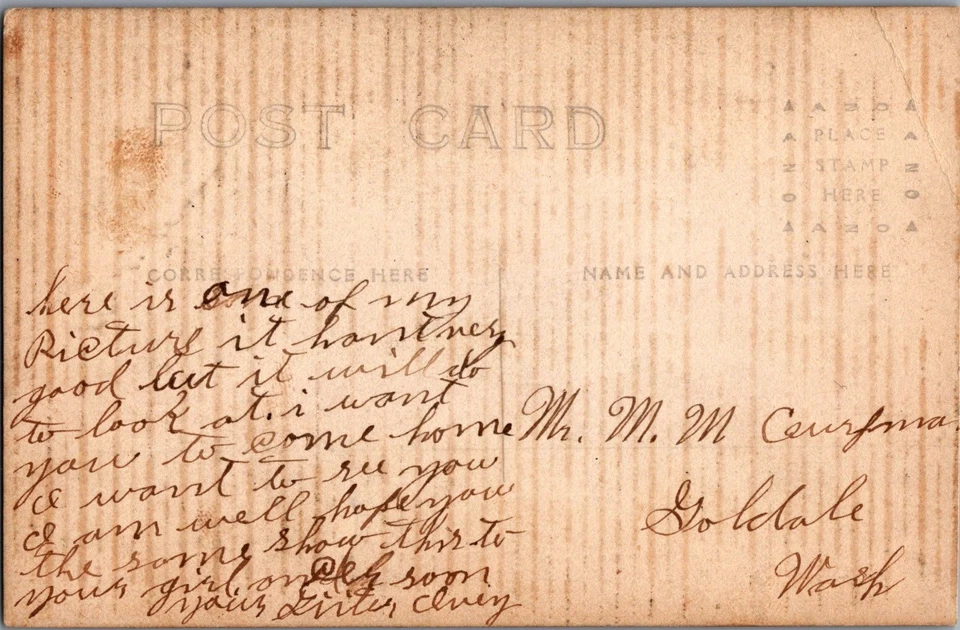 POST CARD
AZO
PLACE
STAMP
HERE
AZO
CORRESPONDENCE HERE
NAME AND ADDRESS HERE
here is one of my
Picture it haint very
good but it will do
to look at. i want
you to come home
I want to see you
I am well hope you
the same show this to
your girl soon
your Sister
Mr. M. M
Goldale
Wash